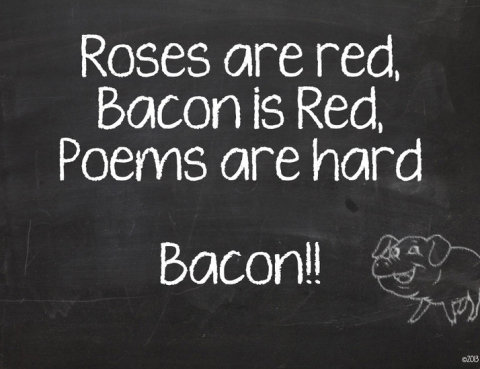 Roses are red,
Bacon is Red,
Poems are hard
Bacon!!
©2013